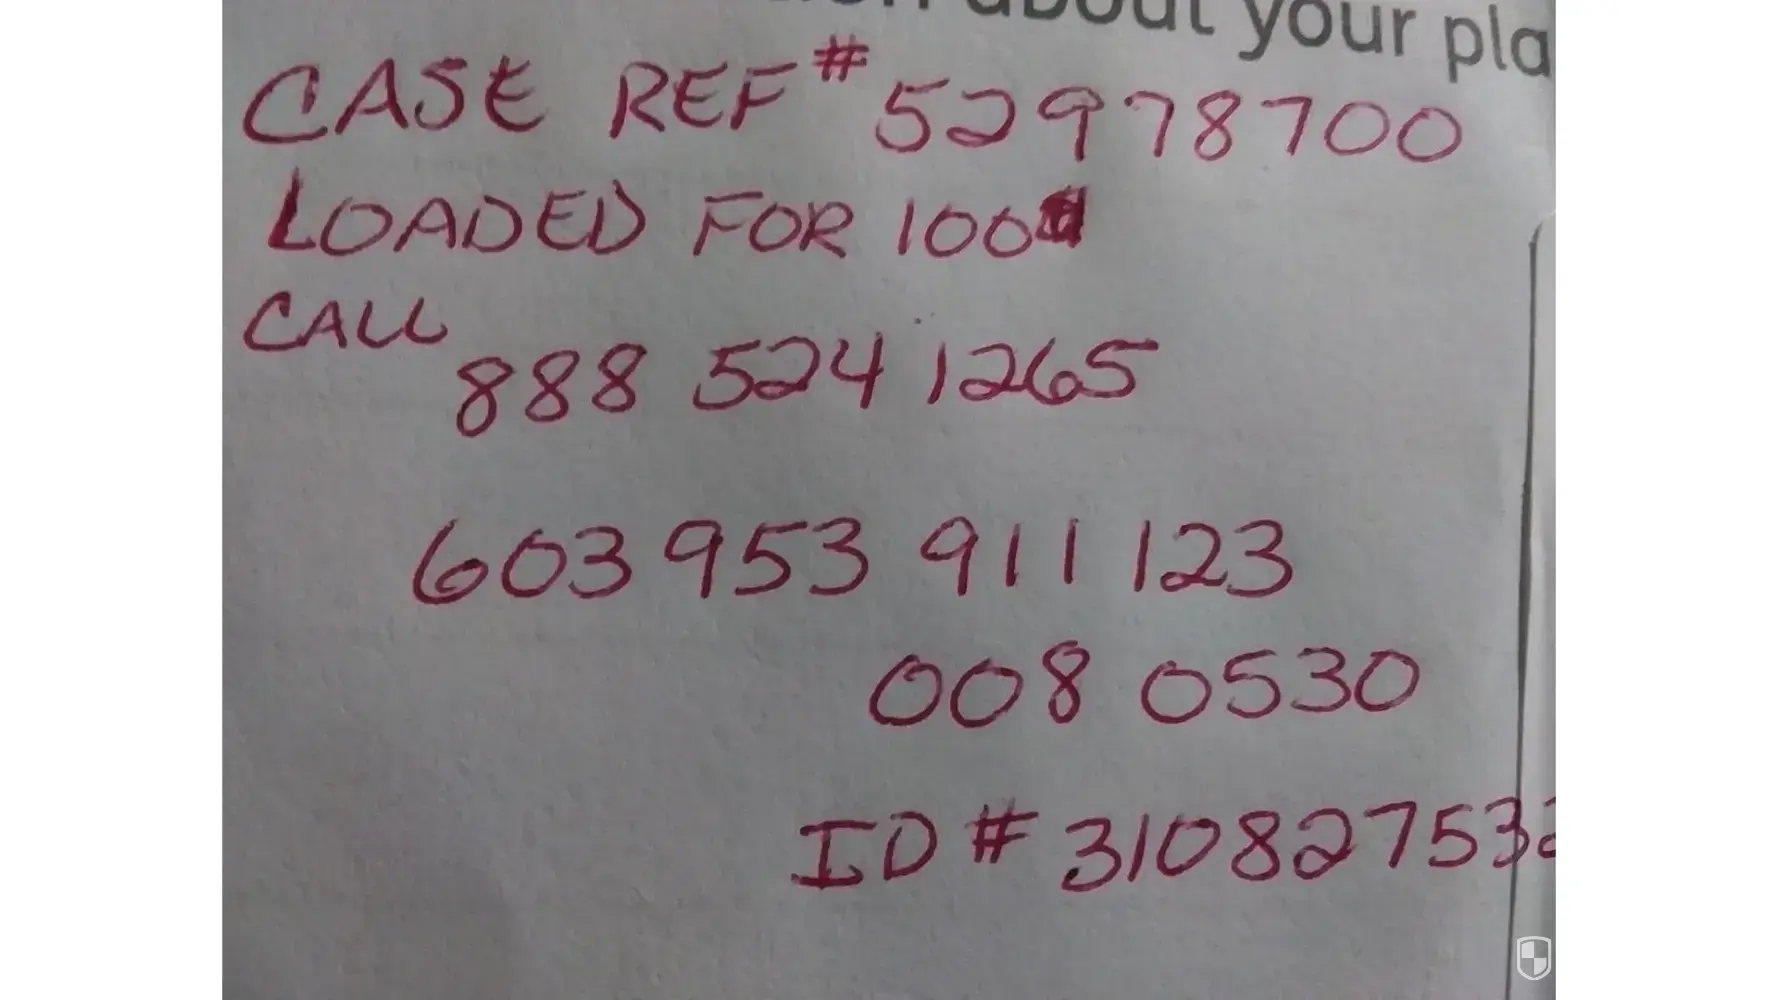 about your pla
CASE REF # 52978700
LOADED FOR 100
CALL
888 524 1265
603 953 911 123
008 0530
ID # 310827532